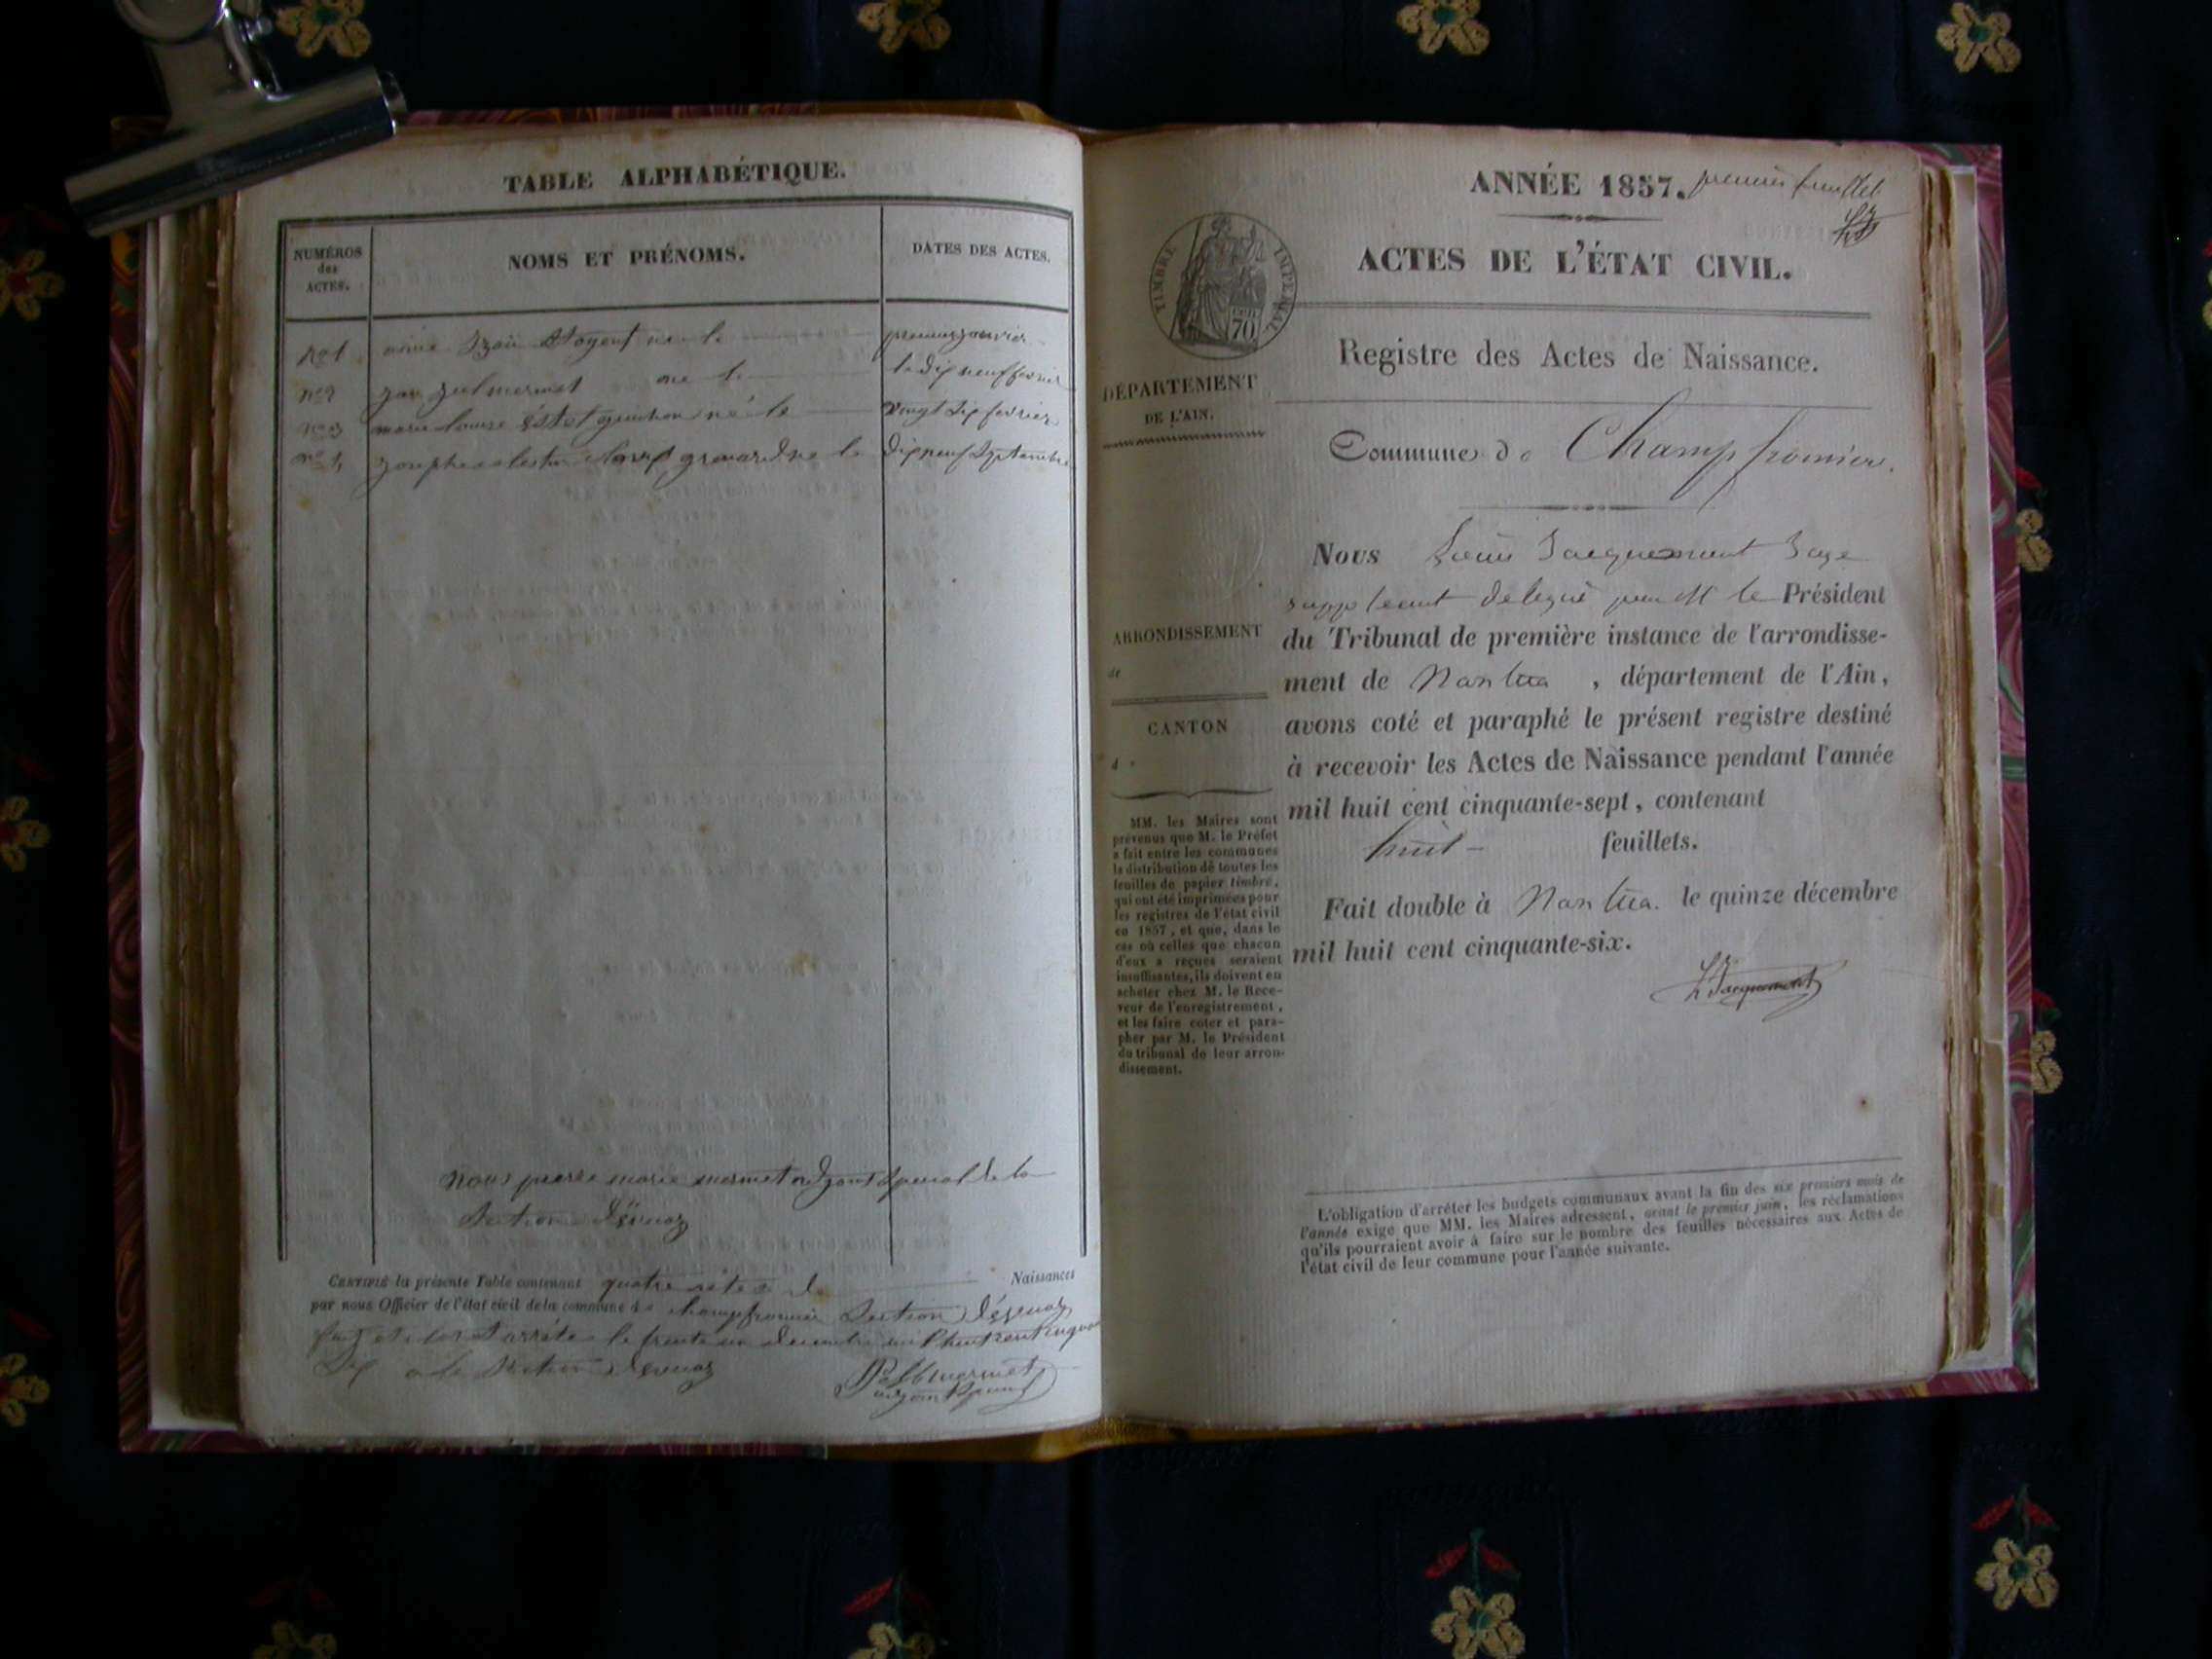 TABLE ALPHABÉTIQUE.
NUMÉROS
des
ACTES.
NOMS ET PRÉNOMS.
DATES DES ACTES.
no 1 né le premier janvier
no 2 né le le dix neuf fevrier
no 3 marie louise né le vingt six fevrier
no 4 grenard né le dix neuf Septembre
Nous pierre marie mermet adjoint spécial de la
Section
CERTIFIÉ la présente Table contenant quatre actes de Naissances
par nous Officier de l'état civil de la commune de champfromier Section
arrêté le trente un decembre mil huit cent cinquante
Six a la Section
mermet
adjoint spécial
ANNÉE 1857. premier feuillet
LJ
ACTES DE L'ÉTAT CIVIL.
TIMBRE IMPÉRIAL
70
Registre des Actes de Naissance.
DÉPARTEMENT
DE L'AIN.
Commune de Champfromier.
Nous Louis Jacquemont Juge
suppleant delegué par M le Président
ARRONDISSEMENT
de
du Tribunal de première instance de l'arrondisse-
ment de Nantua , département de l'Ain,
CANTON
d
avons coté et paraphé le présent registre destiné
à recevoir les Actes de Naissance pendant l'année
mil huit cent cinquante-sept, contenant
huit feuillets.
Fait double à Nantua. le quinze décembre
mil huit cent cinquante-six.
L Jacquemont
MM. les Maires sont
prévenus que M. le Préfet
a fait entre les communes
la distribution de toutes les
feuilles de papier timbré,
qui ont été imprimées pour
les registres de l'état civil
en 1857, et que, dans le
cas où celles que chacun
d'eux a reçues seraient
insuffisantes, ils doivent en
acheter chez M. le Rece-
veur de l'enregistrement,
et les faire coter et para-
pher par M. le Président
du tribunal de leur arron-
dissement.
L'obligation d'arrêter les budgets communaux avant la fin des six premiers mois de
l'année exige que MM. les Maires adressent, avant le premier juin, les réclamations
qu'ils pourraient avoir à faire sur le nombre des feuilles nécessaires aux Actes de
l'état civil de leur commune pour l'année suivante.